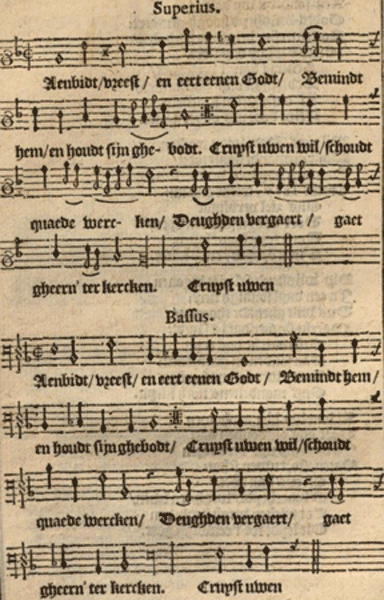 Superius.
Aenbidt/vreest/ en eert eenen Godt/ Bemindt
hem/en houdt sijn ghe- bodt. Cruyst uwen wil/schoudt
quaede werc- ken/ Deughden vergaert/ gaet
gheern' ter kercken. Cruyst uwen
Bassus.
Aenbidt/vreest/ en eert eenen Godt/ Bemindt hem/
en houdt sijn ghebodt/ Cruyst uwen wil/schoudt
quaede wercken/ Deughden vergaert/ gaet
gheern' ter kercken. Cruyst uwen